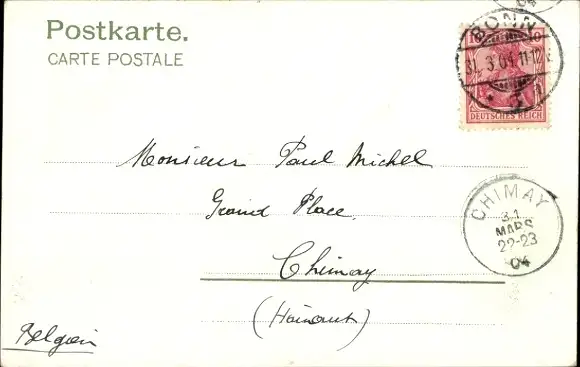 Postkarte.
CARTE POSTALE
04
BONN
31. 3 04 11-12 V.
10 10
DEUTSCHES REICH
Monsieur Paul Michel
Grand Place.
Chimay
(Hainaut)
Belgien
CHIMAY
31
MARS
22-23
04